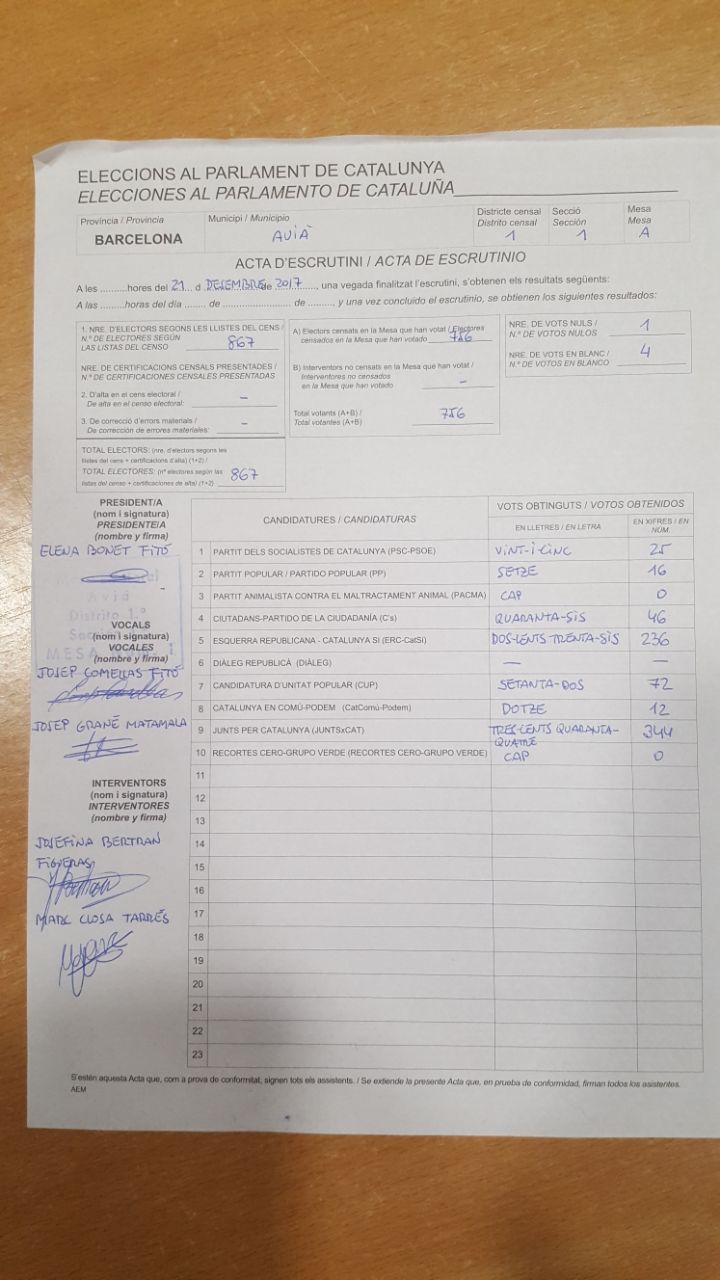 ELECCIONS AL PARLAMENT DE CATALUNYA
ELECCIONES AL PARLAMENTO DE CATALUÑA
Província / Provincia
BARCELONA
Municipi / Municipio
AVIÀ
Districte censal
Distrito censal
1
Secció
Sección
1
Mesa
Mesa
A
ACTA D'ESCRUTINI / ACTA DE ESCRUTINIO
A les ..........hores del 21... d DESEMBRE de 2017......, una vegada finalitzat l'escrutini, s'obtenen els resultats següents:
A las .........horas del día ........ de ........................ de ........., y una vez concluido el escrutinio, se obtienen los siguientes resultados:
1. NRE. D'ELECTORS SEGONS LES LLISTES DEL CENS /
N.º DE ELECTORES SEGÚN
LAS LISTAS DEL CENSO 867
NRE. DE CERTIFICACIONS CENSALS PRESENTADES /
N.º DE CERTIFICACIONES CENSALES PRESENTADAS
2. D'alta en el cens electoral /
De alta en el censo electoral: –
3. De correcció d'errors materials /
De corrección de errores materiales: –
TOTAL ELECTORS: (nre. d'electors segons les
llistes del cens + certificacions d'alta) (1+2) /
TOTAL ELECTORES: (nº electores según las
listas del censo + certificaciones de alta) (1+2) 867
A) Electors censats en la Mesa que han votat / Electores
censados en la Mesa que han votado 756
B) Interventors no censats en la Mesa que han votat /
Interventores no censados
en la Mesa que han votado –
Total votants (A+B) /
Total votantes (A+B) 756
NRE. DE VOTS NULS /
N.º DE VOTOS NULOS 1
NRE. DE VOTS EN BLANC /
N.º DE VOTOS EN BLANCO 4
PRESIDENT/A
(nom i signatura)
PRESIDENTE/A
(nombre y firma)
ELENA BONET FITÓ
Avià
Distrito 1.º
VOCALS
(nom i signatura)
VOCALES
(nombre y firma)
MESA
JOSEP COMELLAS FITÓ
JOSEP GRANÉ MATAMALA
INTERVENTORS
(nom i signatura)
INTERVENTORES
(nombre y firma)
JOSEFINA BERTRAN
FIGUERAS
MARC CLOSA TARRÉS
CANDIDATURES / CANDIDATURAS
VOTS OBTINGUTS / VOTOS OBTENIDOS
EN LLETRES / EN LETRA
EN XIFRES / EN
NÚM.
1 PARTIT DELS SOCIALISTES DE CATALUNYA (PSC-PSOE) VINT-I-CINC 25
2 PARTIT POPULAR / PARTIDO POPULAR (PP) SETZE 16
3 PARTIT ANIMALISTA CONTRA EL MALTRACTAMENT ANIMAL (PACMA) CAP 0
4 CIUTADANS-PARTIDO DE LA CIUDADANÍA (C's) QUARANTA-SIS 46
5 ESQUERRA REPUBLICANA - CATALUNYA SI (ERC-CatSí) DOS-CENTS TRENTA-SIS 236
6 DIÀLEG REPUBLICÀ (DIÀLEG) — —
7 CANDIDATURA D'UNITAT POPULAR (CUP) SETANTA-DOS 72
8 CATALUNYA EN COMÚ-PODEM (CatComú-Podem) DOTZE 12
9 JUNTS PER CATALUNYA (JUNTSxCAT) TRES-CENTS QUARANTA-
QUATRE 344
10 RECORTES CERO-GRUPO VERDE (RECORTES CERO-GRUPO VERDE) CAP 0
11
12
13
14
15
16
17
18
19
20
21
22
23
S'estén aquesta Acta que, com a prova de conformitat, signen tots els assistents. / Se extiende la presente Acta que, en prueba de conformidad, firman todos los asistentes.
AEM